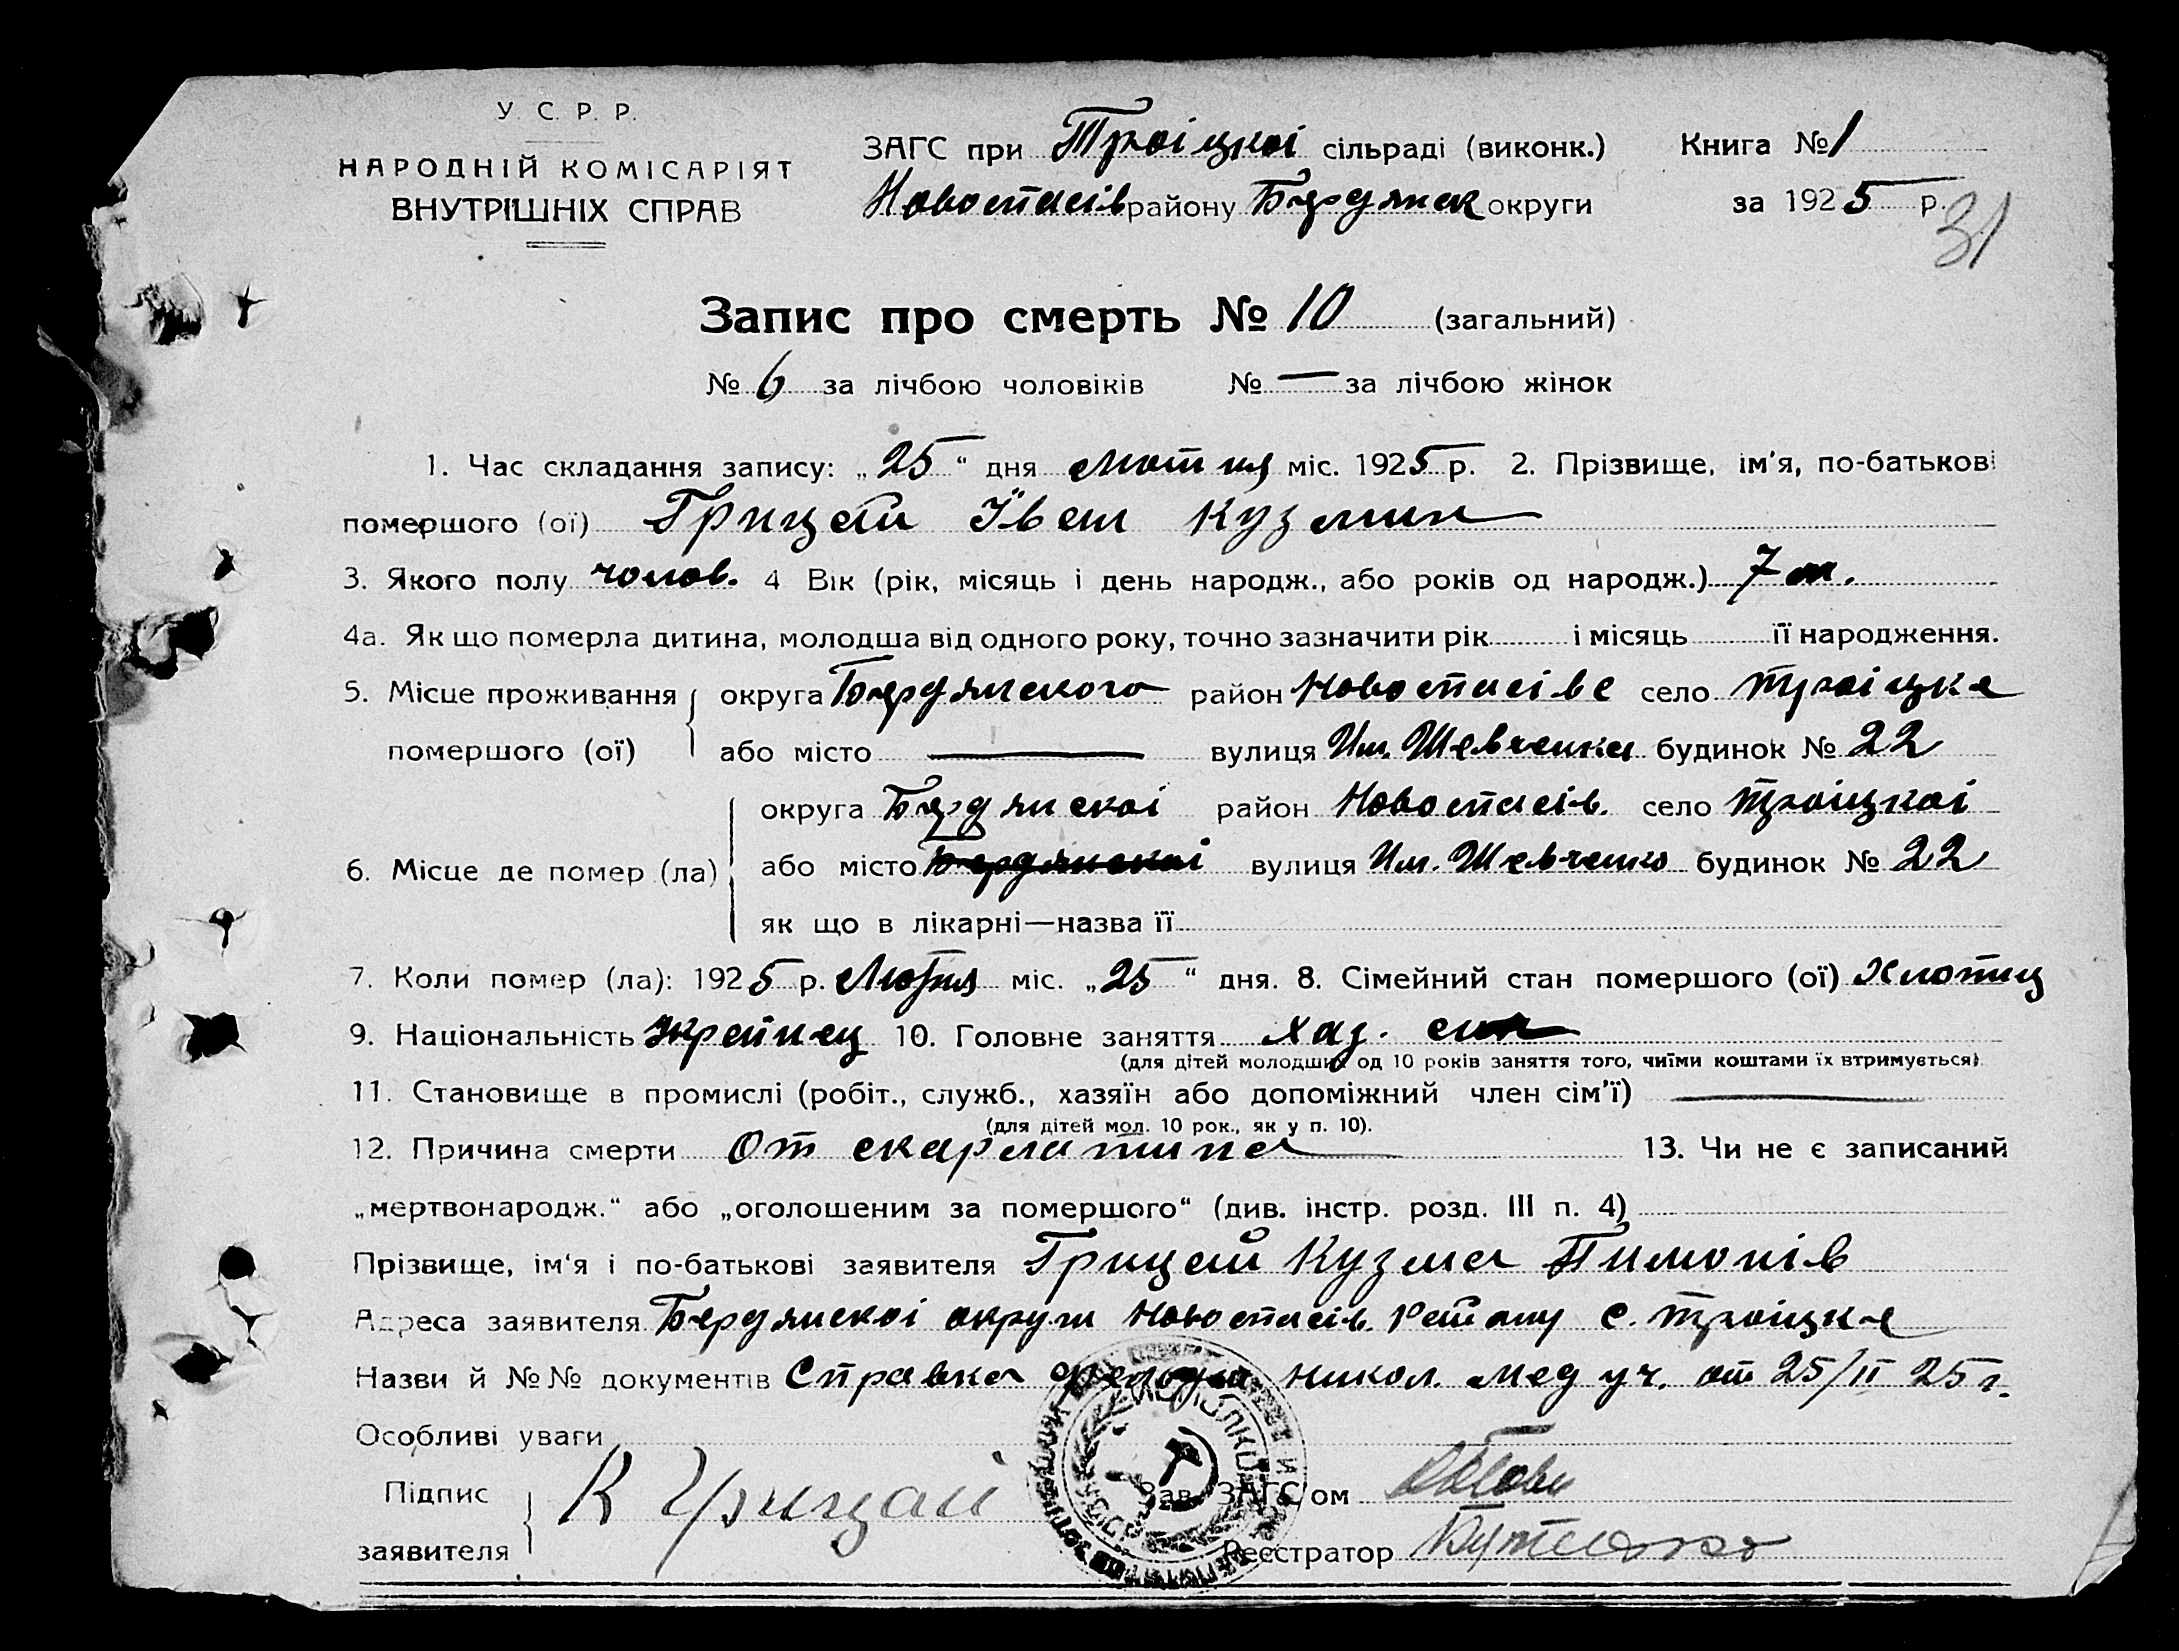 У. С. Р. Р.
НАРОДНІЙ КОМІСАРІЯТ
ВНУТРІШНІХ СПРАВ
ЗАГС при Троіцкоі сільраді (виконк.)
Новоспасів району Бердянск округи
Книга № 1
за 1925 р.
31
Запис про смерть № 10 (загальний)
№ 6 за лічбою чоловіків № — за лічбою жінок
1. Час складання запису: „25“ дня Лютня міс. 1925 р. 2. Прізвище, ім'я, по-батькові
помершого (ої) Грицай Їван Кузмин
3. Якого полу чолов. 4 Вік (рік, місяць і день народж., або років од народж.) 7 л.
4а. Як що померла дитина, молодша від одного року, точно зазначити рік і місяць її народження.
5. Місце проживання помершого (ої) округа Бердянского район Новоспасівс село Троіцке
або місто — вулиця Им. Шевченка будинок № 22
6. Місце де помер (ла) округа Бердянскоі район Новоспасів. село Троіцкоі
або місто Бердянскоі вулиця Им. Шевченко будинок № 22
як що в лікарні—назва її
7. Коли помер (ла): 1925 р. Лютня міс. „25“ дня. 8. Сімейний стан помершого (ої) Хлопиц
9. Національність Украйнец 10. Головне заняття хаз. син
(для дітей молодших од 10 років заняття того, чиїми коштами їх втримується)
11. Становище в промислі (робіт., служб., хазяїн або допоміжний член сім'ї) —
(для дітей мол. 10 рок., як у п. 10).
12. Причина смерти От скарлатина 13. Чи не є записаний
„мертвонародж.“ або „оголошеним за помершого“ (див. інстр. розд. III п. 4)
Прізвище, ім'я і по-батькові заявителя Грицай Кузма Пимонів
Адреса заявителя Бердянскоі округи Новоспасів. Району с. Троіцке
Назви й №№ документів Справка Никол. Мед уч. от 25/II 25 г.
Особливі уваги
Підпис заявителя К Грицай
Зав. ЗАГС'ом
Реєстратор